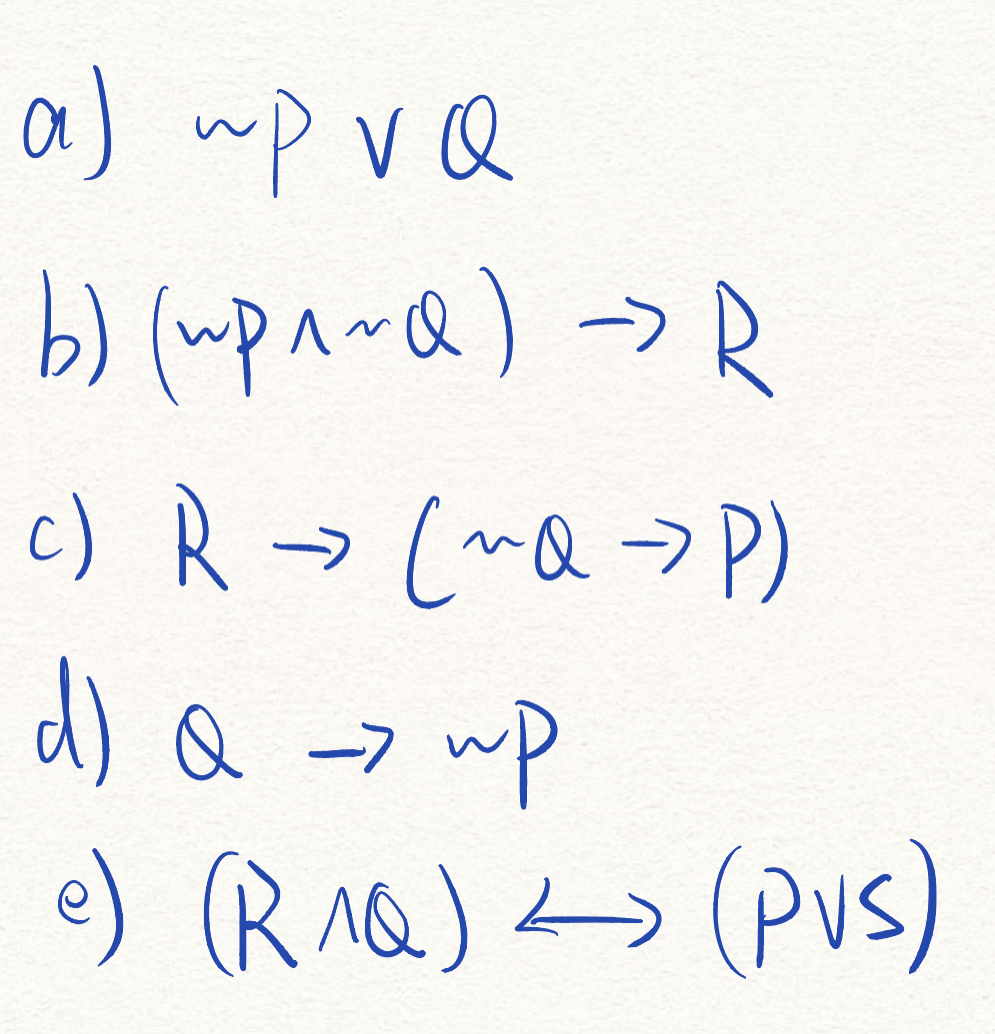 a) ~P ∨ Q
b) (~P ∧ ~Q) → R
c) R → (~Q → P)
d) Q → ~P
e) (R ∧ Q) ↔ (P ∨ S)